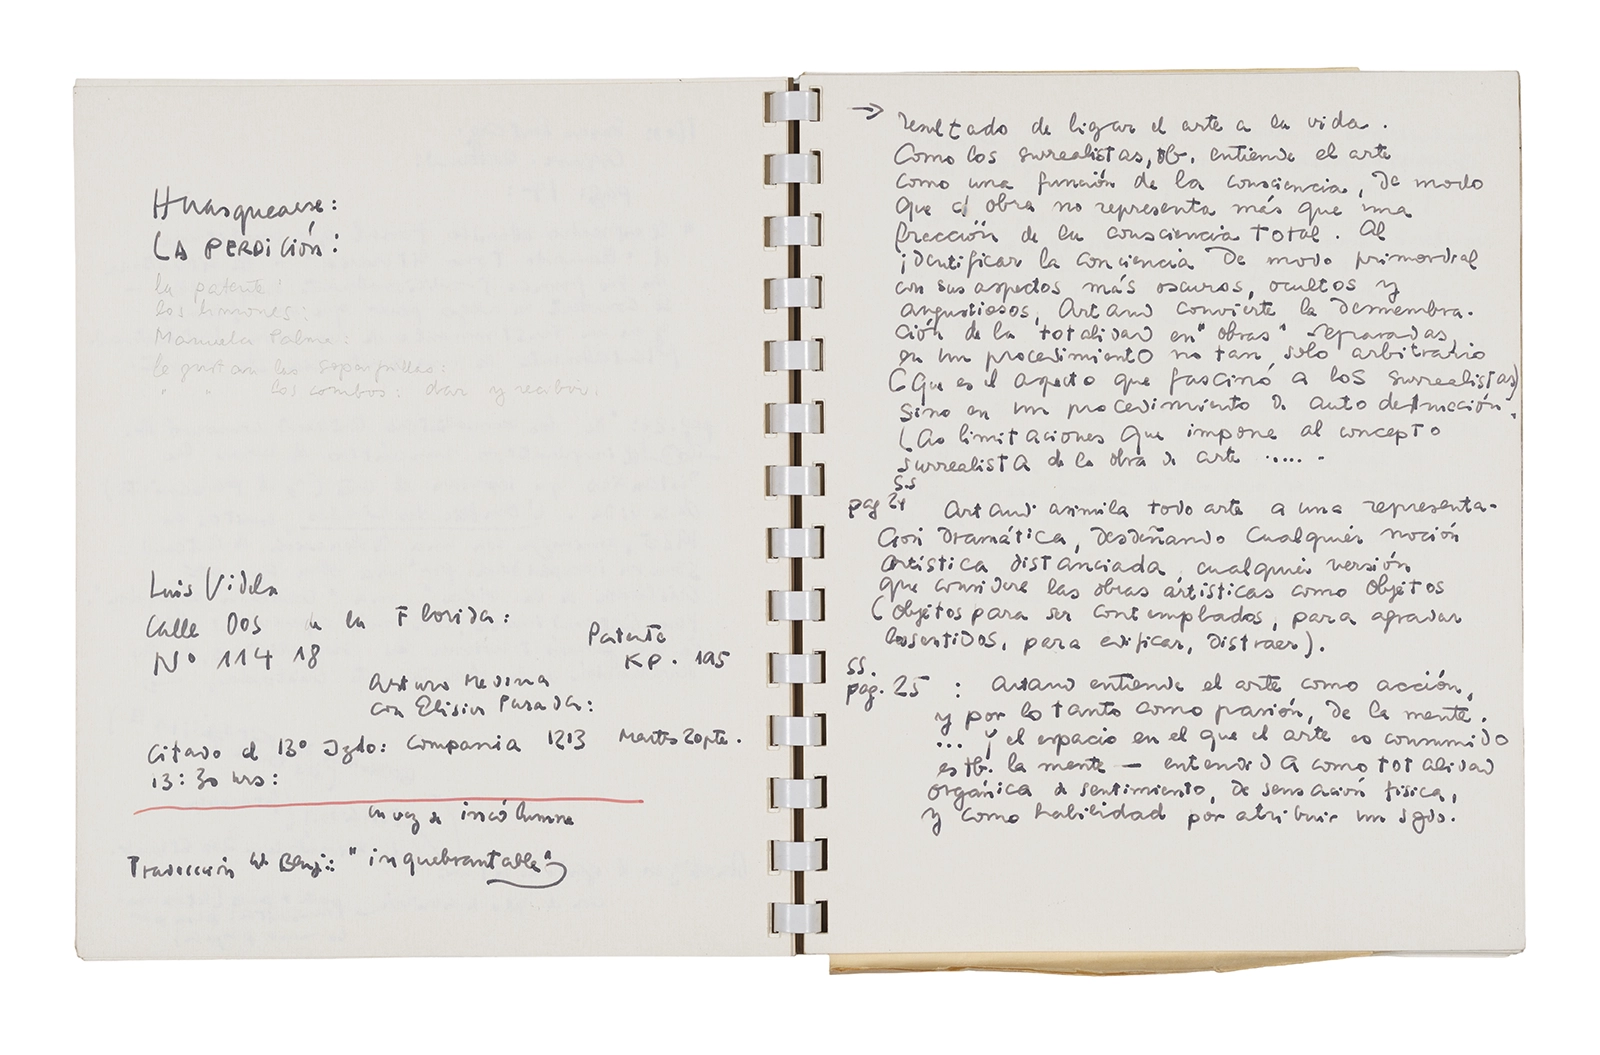 Huasquearse:
LA PERDICIÓN:
la patente:
los limones:
Manuela Palma:
le gustan las zapatillas:
" " los combos: dar y recibir.
Luis Videla
Calle Dos de la Florida:
Nº 114 18
Patente
KP. 195
Arturo Medina
con Elisia Parada:
Citado al 13º Jzdo: Compania 1213 Martes 20 pte.
13:30 hrs:
en vez de incólumne
Traducción W. Benj: "inquebrantable"
→ resultado de ligar el arte a la vida.
Como los surrealistas, tb. entiende el arte
como una función de la consciencia, de modo
que c/ obra no representa más que una
fracción de la consciencia total. Al
identificar la conciencia de modo primordial
con sus aspectos más oscuros, ocultos y
angustiosos, Artaud convierte la desmembra-
ción de la totalidad en "obras" separadas,
en un procedimiento no tan solo arbitrario
(que es el aspecto que fascinó a los surrealistas)
sino en un procedimiento de auto destrucción.
Las limitaciones que impone al concepto
surrealista de la obra de arte .....
ss
pag 24 Artaud asimila todo arte a una representa-
ción dramática, desdeñando cualquier noción
artística distanciada, cualquier versión
que considere las obras artísticas como objetos
(objetos para ser contemplados, para agradar
los sentidos, para edificar, distraer).
ss.
pag. 25 : Artaud entiende el arte como acción,
y por lo tanto como pasión, de la mente.
... y el espacio en el que el arte es consumido
es tb. la mente — entendida como totalidad
orgánica de sentimiento, de sensación física,
y como habilidad por atribuir un sgdo.